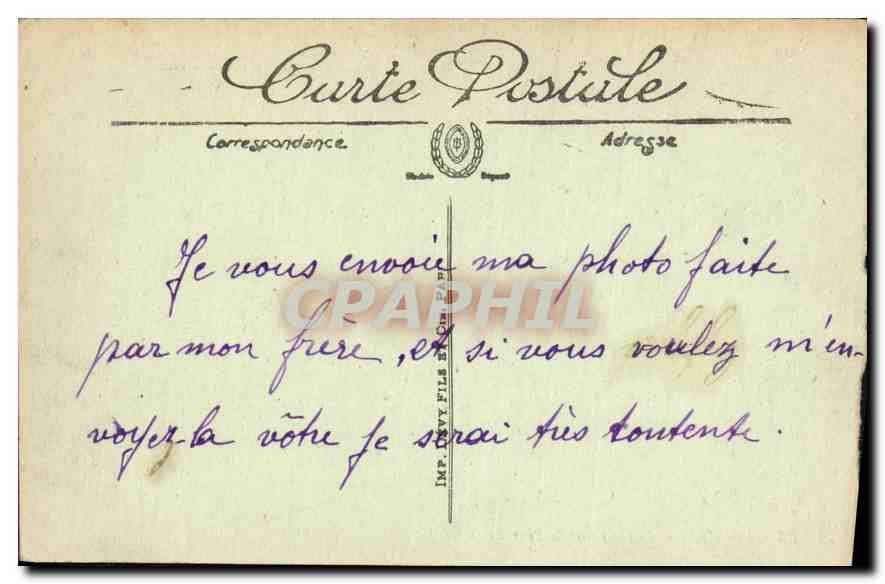 Carte Postale
Correspondance
Adresse
Modèle Déposé
Je vous envoie ma photo faite
par mon frère, et si vous voulez m'en-
voyez-la vôtre je serai très contente.
CPAPHIL
IMP. LÉVY FILS ET CIE. PARIS